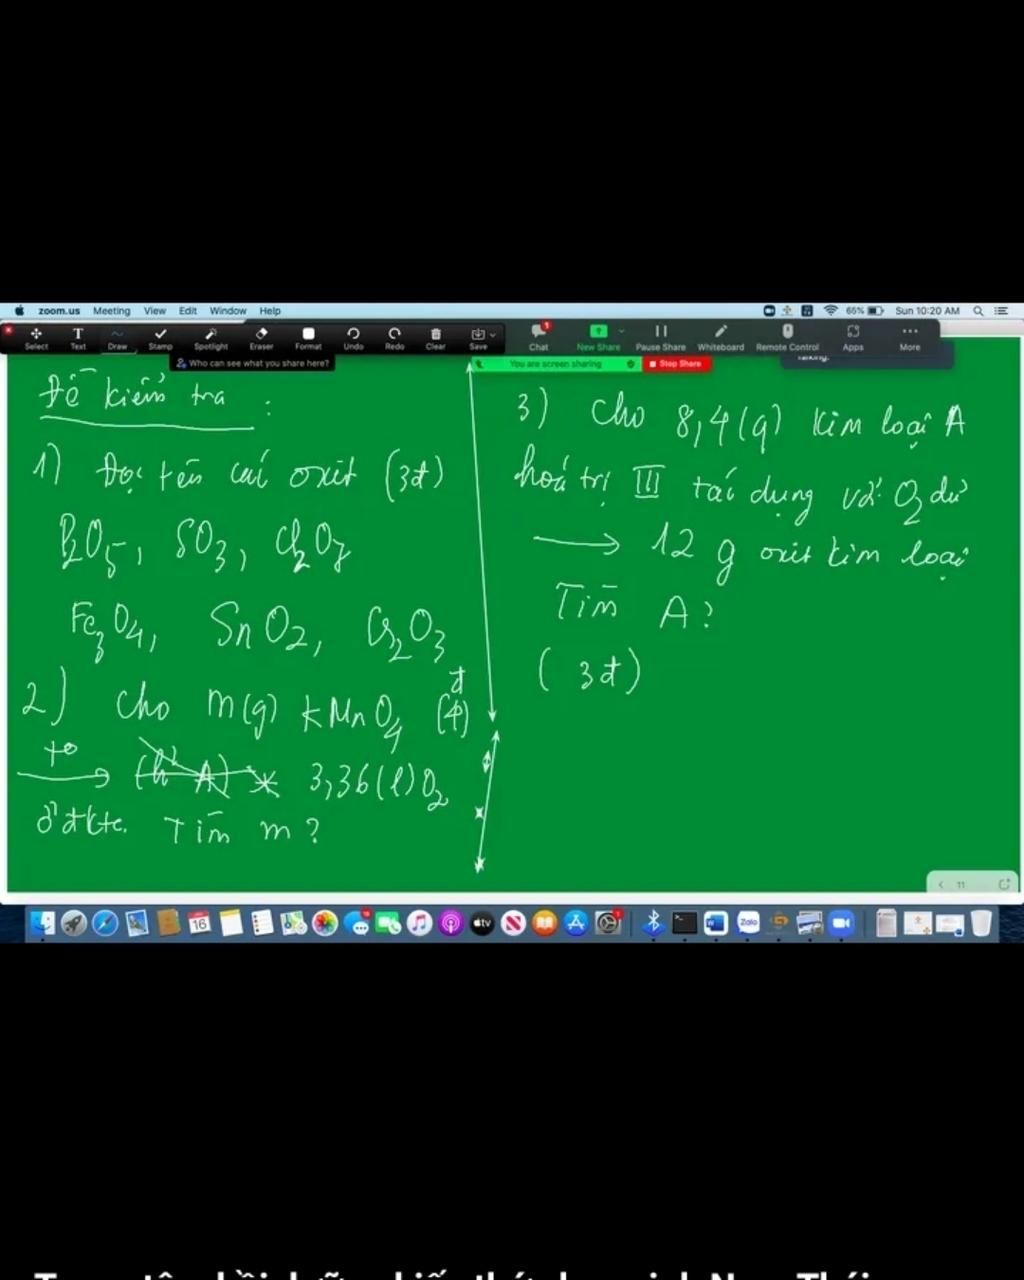 zoom.us Meeting View Edit Window Help 65% Sun 10:20 AM
Select Text Draw Stamp Spotlight Eraser Format Undo Redo Clear Save Chat New Share Pause Share Whiteboard Remote Control Apps More
Who can see what you share here?
You are screen sharing Stop Share
Talking:
Đề kiểm tra :
1) Đọc tên các oxit (3đ)
P2O5, SO3, Cl2O7
Fe3O4, SnO2, Cr2O3
2) Cho m(g) KMnO4 (4đ)
t° 3,36(l) O2
ở đktc. Tìm m?
3) Cho 8,4(g) kim loại A
hoá trị III tác dụng với O2 dư
→ 12 g oxit kim loại
Tìm A?
(3đ)
11
16
tv
Zalo